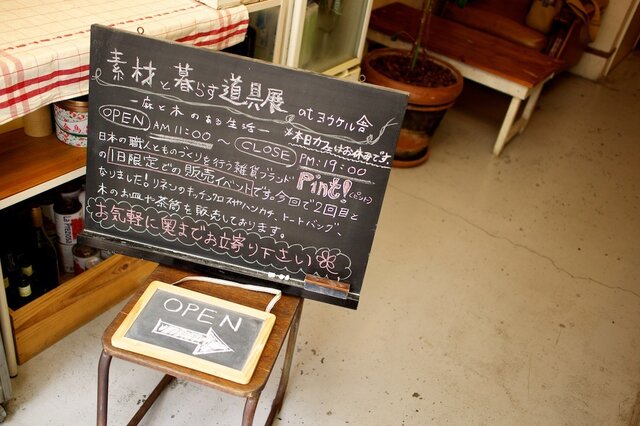 素材と暮らす道具展 at ヨウケル舎
-麻と木のある生活-
※本日カフェはお休みです
OPEN AM 11:00 ~ CLOSE PM:19:00
日本の職人とものづくりを行う雑貨ブランド Pint!(ピント)
の1日限定での販売イベントです。今回で2回目と
なりました!リネンのキッチンクロスやハンカチ、トートバッグ、
木のお皿や茶筒を販売しております。
お気軽に奥までお立寄り下さい
OPEN